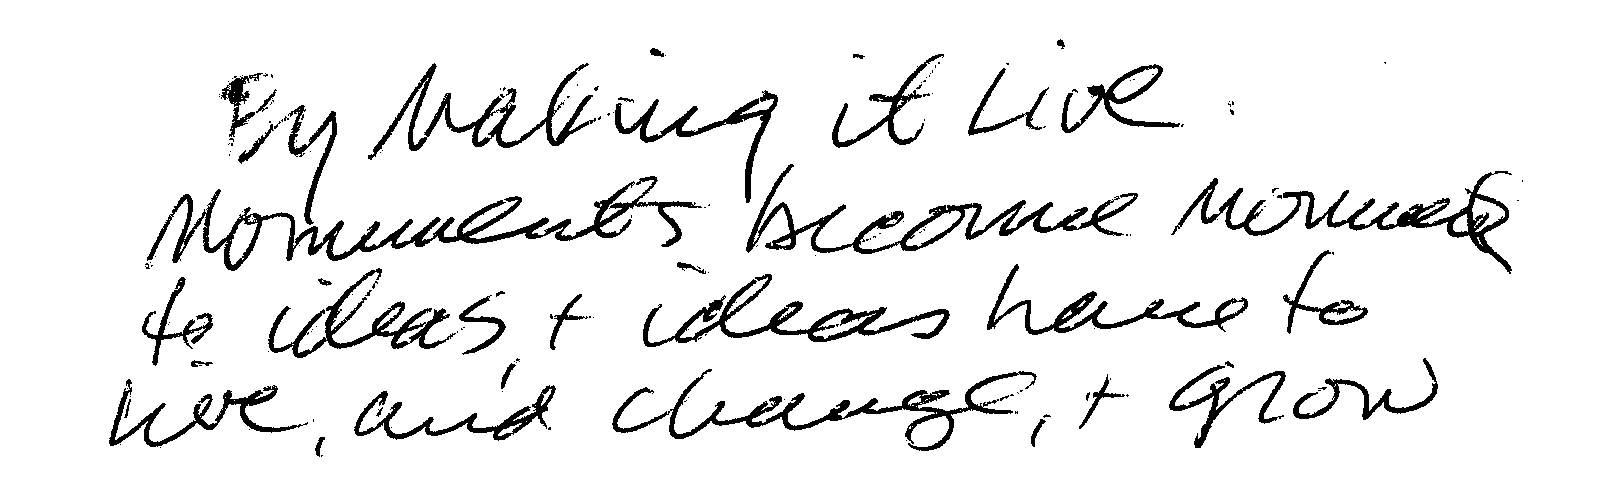 By Making it Live.
Monuments become Monuments
to ideas, + ideas have to
live, and change, + grow